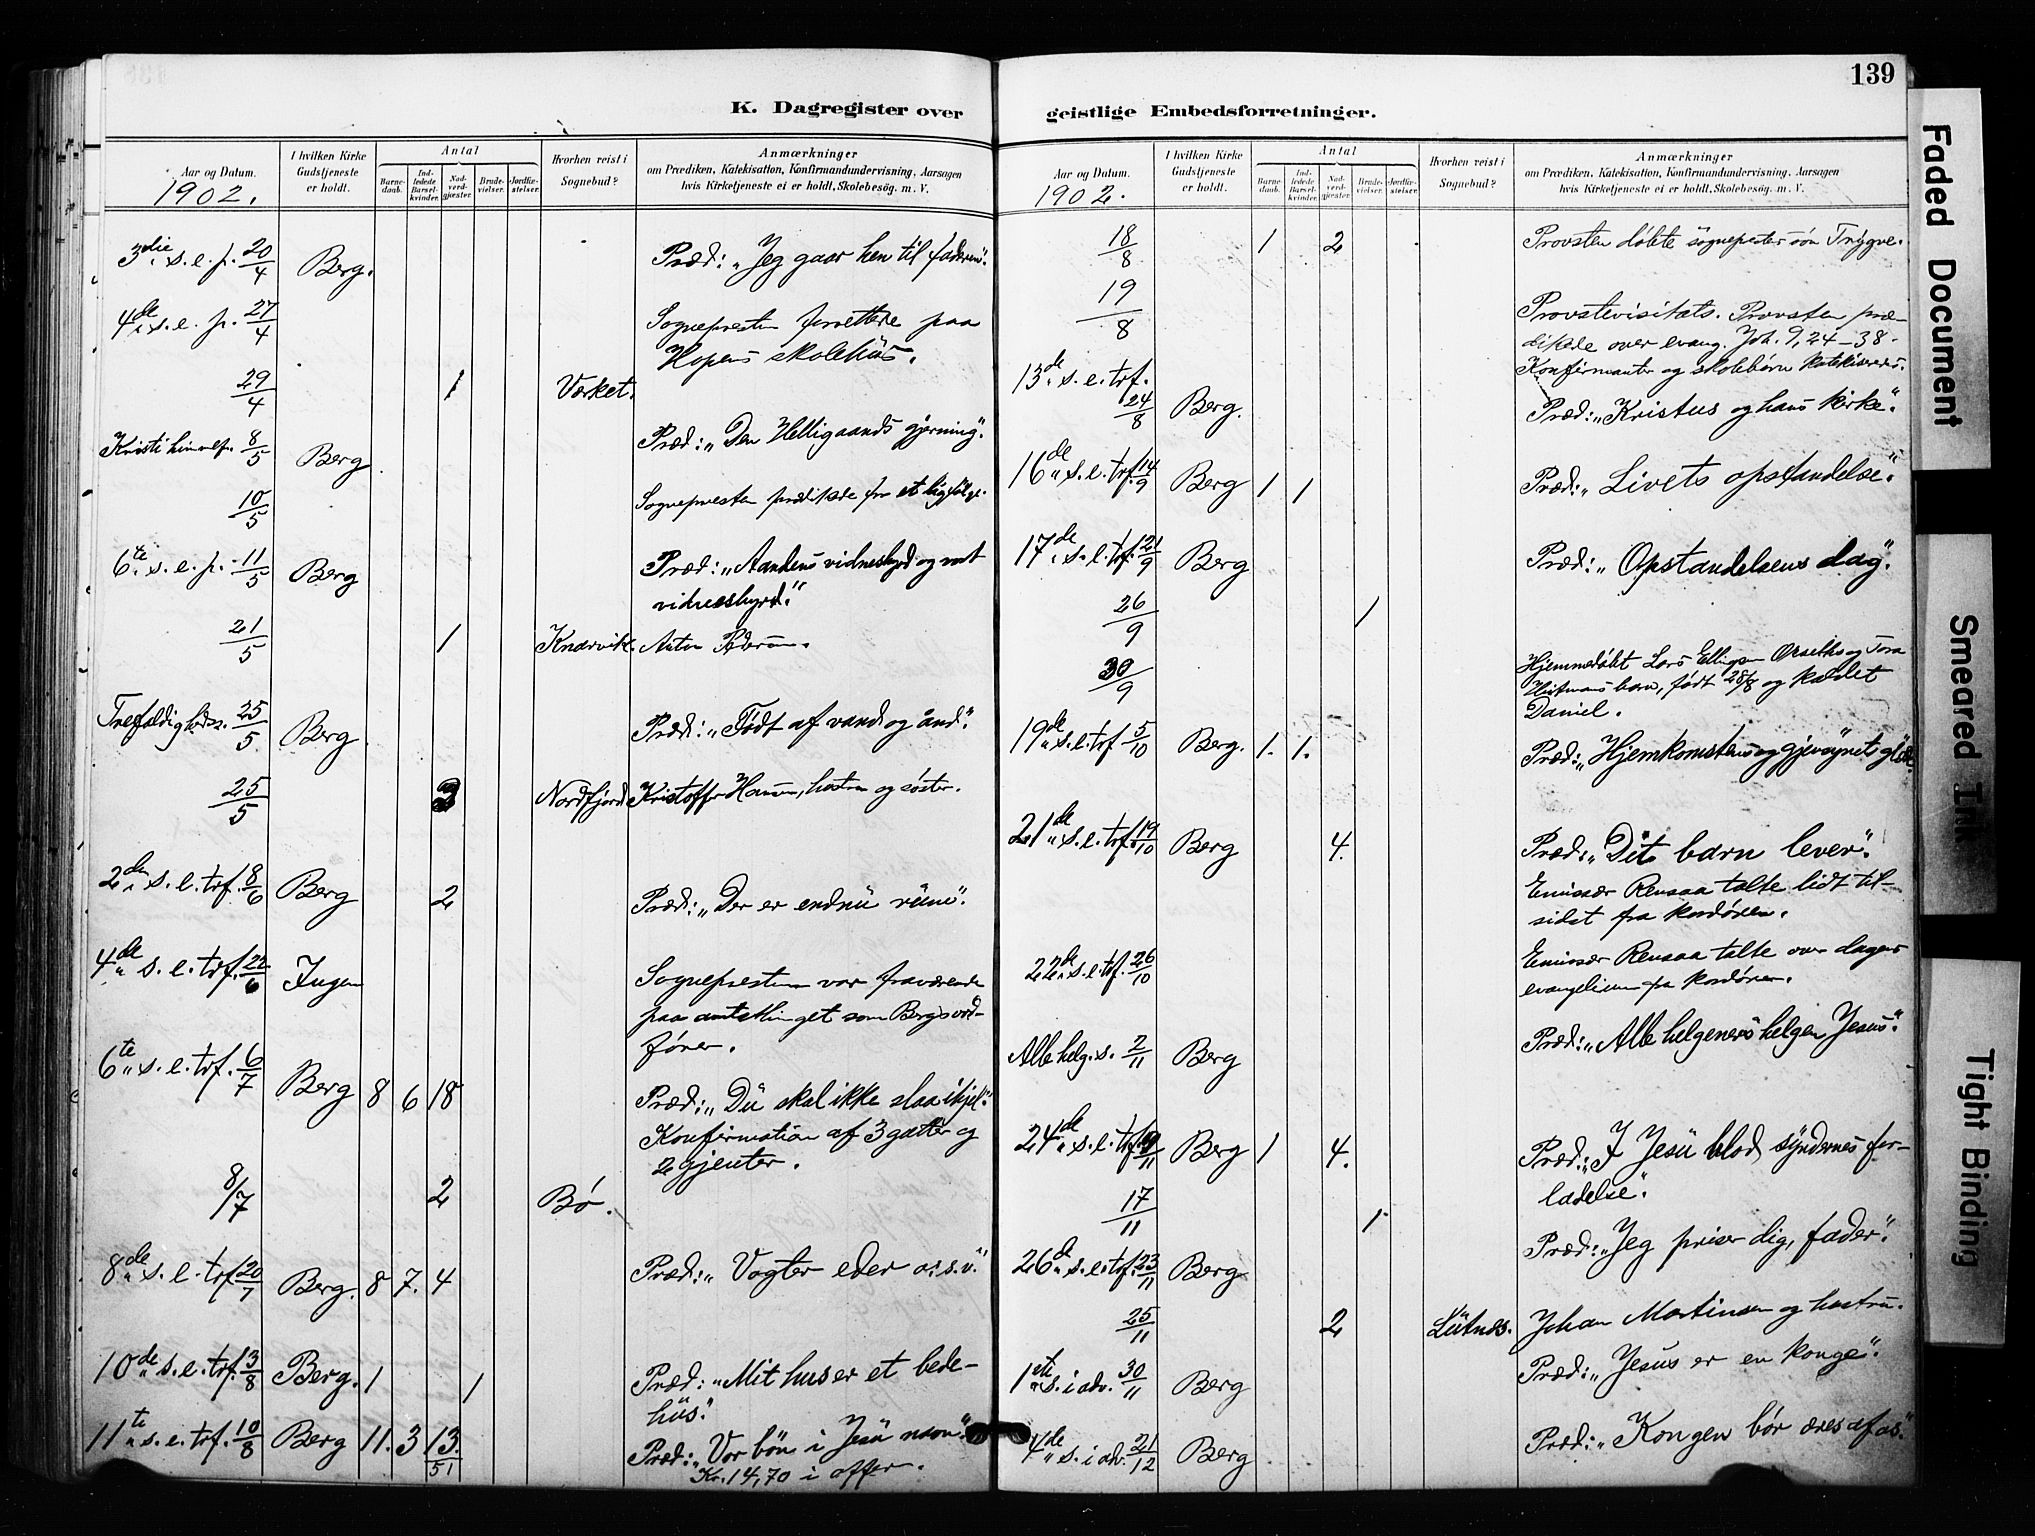 139
K. Dagregister over
Aar og Datum.
1902.
I hvilken Kirke Gudstjeneste er holdt.
Antal
Barne-daab.
Ind-ledede Barsel-kvinder.
Nad-verd-gjæster.
Brude-vielser.
Jordfæ-stelser.
Hvorhen reist i Sognebud?
Anmærkninger
om Prædiken, Katekisation, Konfirmandundervisning, Aarsagen
hvis Kirketjeneste ei er holdt, Skolebesøg. m. V.
3die s. e. p. 20/4 Berg. Præd: „Jeg gaar hen til faderen“.
4de s. e. p. 27/4 Sognepresten forrettede paa
Hopens skolehus.
29/4 1 Værket.
Kristi himmelf. 8/5 Berg Præd: „Den Helligaands gjerning“.
10/5 Sognepresten prædikede for et ligfølge.
6te s. e. p. 11/5 Berg Præd: „Aandens vidnesbyrd og vort
vidnesbyrd“.
21/5 1 Knarvik. Anton Pedersen.
Trefoldighedss. 25/5 Berg Præd: „Født af vand og ånd“.
25/5 3 Nordfjord Kristoffer Hansen, hustru og søster.
2den s. e. trf. 8/6 Berg 2 Præd: „Der er endnu rum“.
4de s. e. trf. 22/6 Ingen Sognepresten var fraværende
paa amtsthinget som Bergs ord-
fører.
6te s. e. trf. 6/7 Berg 8 6 18 Præd: „Du skal ikke slaa ihjel“.
Konfirmation af 3 gutter og
2 gjenter.
8/7 2 Bø.
8de s. e. trf. 20/7 Berg. 8 7. 4 Præd: „Vogter eder o.s.v.“
10de s. e. trf. 3/8 Berg. 1 1 Præd: „Mit hus er et bede-
hus“.
11te s. e. trf. 10/8 Berg 11. 3 13. Præd: „Vor bøn i Jesu navn“.
51 Kr. 14,70 i offer.
geistlige Embedsforretninger.
Aar og Datum.
1902.
I hvilken Kirke Gudstjeneste er holdt.
Antal
Barne-daab.
Ind-ledede Barsel-kvinder.
Nad-verd-gjæster.
Brude-vielser.
Jordfæ-stelser.
Hvorhen reist i Sognebud?
Anmærkninger
om Prædiken, Katekisation, Konfirmandundervisning, Aarsagen
hvis Kirketjeneste ei er holdt, Skolebesøg. m. V.
18/8 1 2 Provsten døbte sogneprestens søn Trygve.
19/8 Provstevisitats. Provsten præ-
dikede over evang. Joh. 9, 24–38.
Konfirmanter og skolebørn katekiseredes.
13de s. e. trf. 24/8 Berg. Præd: „Kristus og hans kirke“.
16de s. e. trf. 14/9 Berg 1 1 Præd: „Livets opstandelse“.
17de s. e. trf. 21/9 Berg Præd: „Opstandelsens dag“.
26/9 1
30/9 Hjemmedøbt Lars Ellingsen og Tora
barn, født 28/8 og kaldet
Daniel.
19de s. e. trf. 5/10 Berg. 1. 1. Præd: „Hjemkomstens og gjensynets glæde“.
21de s. e. trf. 19/10 Berg 4. Præd: „Dit barn lever“.
Emissær Rensaa talte lidt til-
sidst fra kordøren.
22de s. e. trf. 26/10 Emissær Rensaa talte over dagens
evangelium fra kordøren.
Alle helg. s. 2/11 Berg Præd: „Alle helgeners helgen Jesus“.
24de s. e. trf. 9/11 Berg 1 4. Præd: „I Jesu blod syndernes for-
ladelse“.
17/11 1
26de s. e. trf. 23/11 Berg Præd: „Jeg priser dig, fader“.
25/11 2 Lutnes. Johan Martinsen og hustru.
1ste s. i adv. 30/11 Berg Præd: „Jesus er en konge“.
4de s. i adv. 21/12 Berg Præd: „Kongen bør æres af os“.
Faded Document
Smeared Ink
Tight Binding